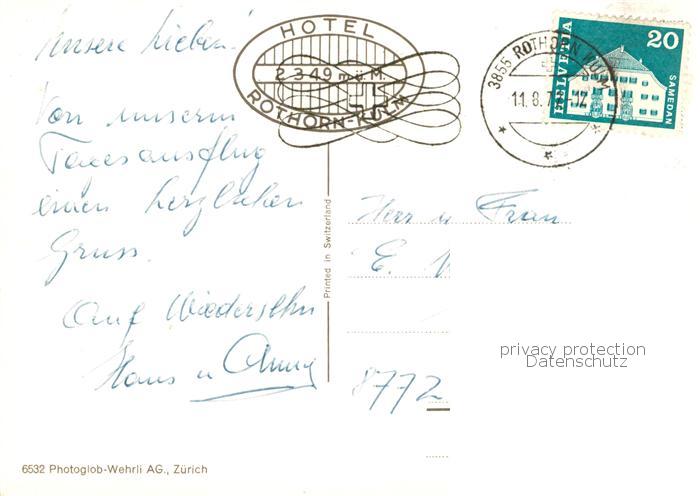 Unsere Lieben!
Von unserm
Tagesausflug
einen herzlichen
Gruss.
Auf Wiedersehn
Hans u
6532 Photoglob-Wehrli AG., Zürich
Printed in Switzerland
HOTEL
2349 m.ü.M.
ROTHORN-KULM
3855 ROTHORN KULM
11.8.7 -12
HELVETIA
20
SAMEDAN
Herr u Frau
E.
8772
privacy protection
Datenschutz